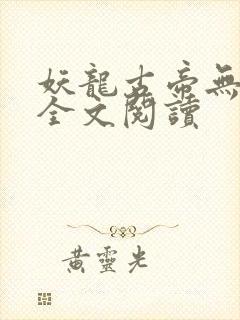 妖龍古帝無
全文閱讀
黃靈光